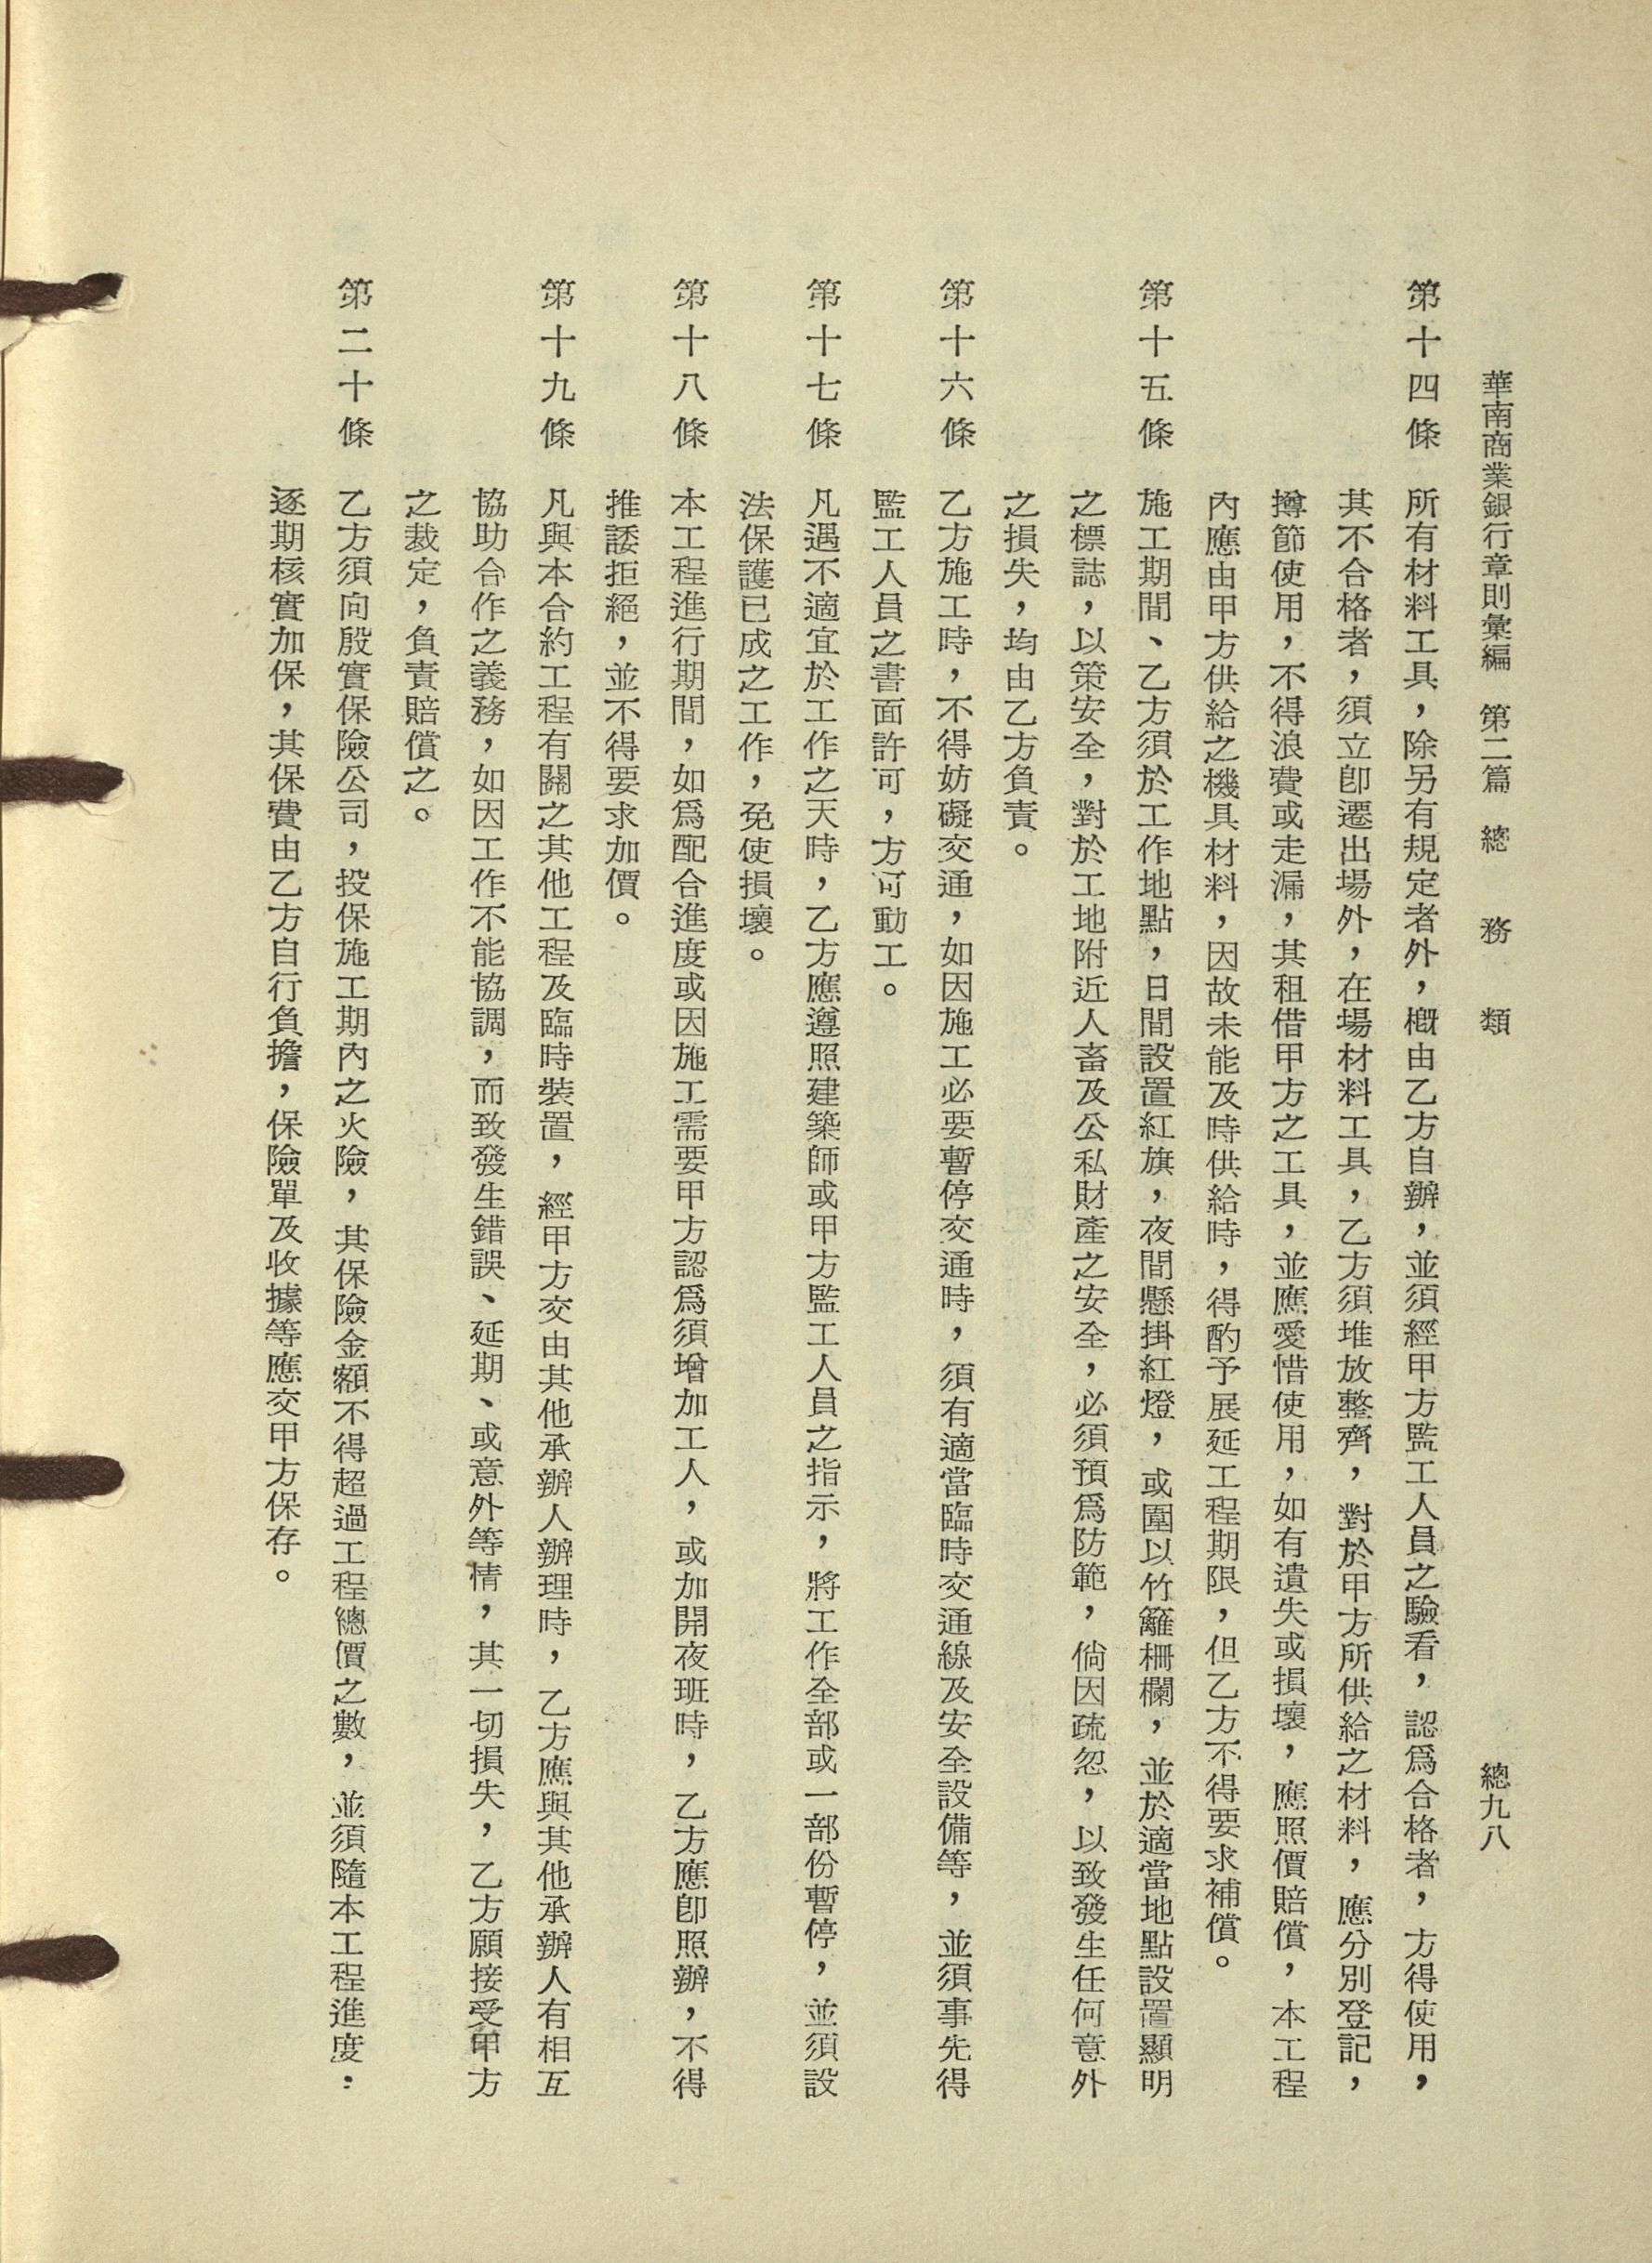 華南商業銀行章則彙編　第二篇　總務類　總九八
第十四條　所有材料工具，除另有規定者外，概由乙方自辦，並須經甲方監工人員之驗看，認爲合格者，方得使用，
其不合格者，須立卽遷出場外，在場材料工具，乙方須堆放整齊，對於甲方所供給之材料，應分別登記，
撙節使用，不得浪費或走漏，其租借甲方之工具，並應愛惜使用，如有遺失或損壞，應照價賠償，本工程
內應由甲方供給之機具材料，因故未能及時供給時，得酌予展延工程期限，但乙方不得要求補償。
第十五條　施工期間、乙方須於工作地點，日間設置紅旗，夜間懸掛紅燈，或圍以竹籬柵欄，並於適當地點設置顯明
之標誌，以策安全，對於工地附近人畜及公私財產之安全，必須預爲防範，倘因疏忽，以致發生任何意外
之損失，均由乙方負責。
第十六條　乙方施工時，不得妨礙交通，如因施工必要暫停交通時，須有適當臨時交通線及安全設備等，並須事先得
監工人員之書面許可，方可動工。
第十七條　凡遇不適宜於工作之天時，乙方應遵照建築師或甲方監工人員之指示，將工作全部或一部份暫停，並須設
法保護已成之工作，免使損壞。
第十八條　本工程進行期間，如爲配合進度或因施工需要甲方認爲須增加工人，或加開夜班時，乙方應卽照辦，不得
推諉拒絕，並不得要求加價。
第十九條　凡與本合約工程有關之其他工程及臨時裝置，經甲方交由其他承辦人辦理時，乙方應與其他承辦人有相互
協助合作之義務，如因工作不能協調，而致發生錯誤、延期、或意外等情，其一切損失，乙方願接受甲方
之裁定，負責賠償之。
第二十條　乙方須向殷實保險公司，投保施工期內之火險，其保險金額不得超過工程總價之數，並須隨本工程進度：
逐期核實加保，其保費由乙方自行負擔，保險單及收據等應交甲方保存。